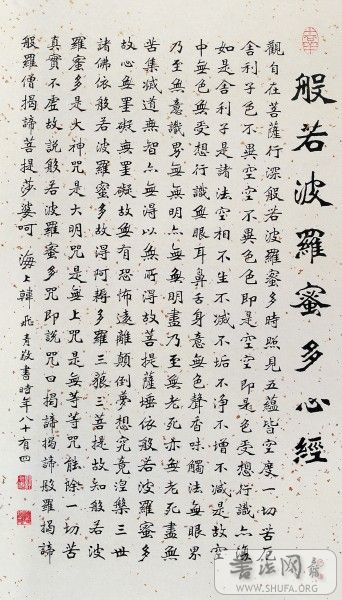 般若波羅蜜多心經
觀自在菩薩行深般若波羅蜜多時照見五蘊皆空度一切苦厄
舍利子色不異空空不異色色即是空空即是色受想行識亦復
如是舍利子是諸法空相不生不滅不垢不淨不增不減是故空
中無色無受想行識無眼耳鼻舌身意無色聲香味觸法無眼界
乃至無意識界無無明亦無無明盡乃至無老死亦無老死盡無
苦集滅道無智亦無得以無所得故菩提薩埵依般若波羅蜜多
故心無罣礙無罣礙故無有恐怖遠離顛倒夢想究竟涅槃三世
諸佛依般若波羅蜜多故得阿耨多羅三藐三菩提故知般若波
羅蜜多是大神咒是大明咒是無上咒是無等等咒能除一切苦
真實不虛故說般若波羅蜜多咒即說咒曰揭諦揭諦般羅揭諦
般羅僧揭諦菩提莎婆呵 海上韓 敬書時年八十有四
書法网
WWW.SHUFA.ORG